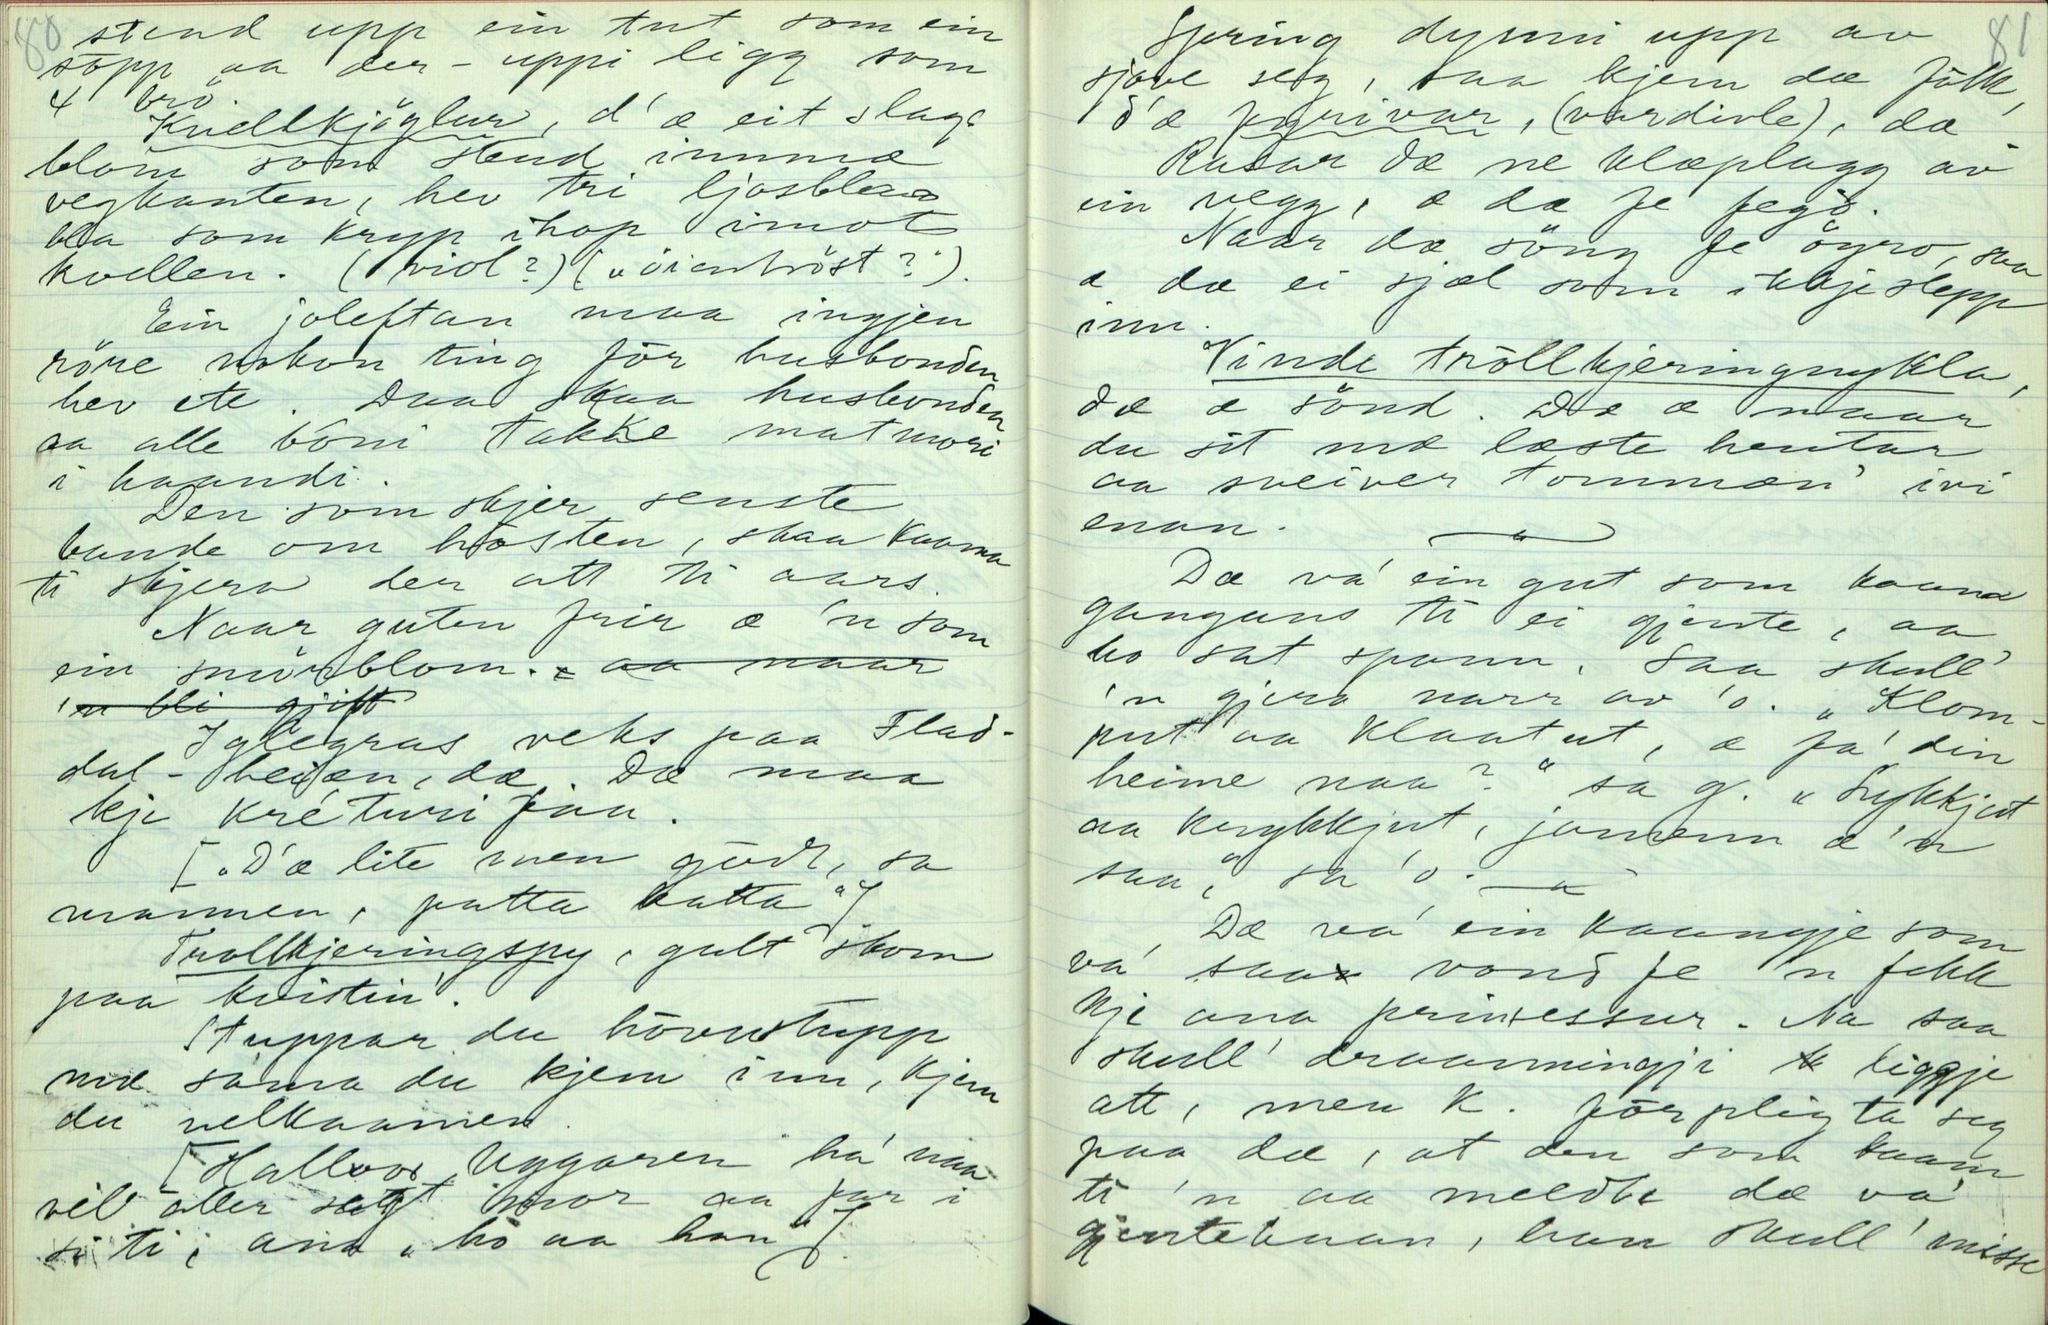 80
stend upp ein tut som ein
sopp aa der-uppi ligg som
4 brö.
Kvellkjöglur, d'æ eit slags
blom som stend innmæ
vegkanten, hev tri ljosblaa
bla som kryp ihop imot
kvellen. (viol?) („öientröst?").
Ein joleftan maa ingjen
röre nokon ting för husbonden
hev ete. Daa skaa husbonden
aa alle böni takke matmori
i haandi.
Den som skjer senste
bande om hösten, skaa kaama
ti skjera der att ti aars.
Naar guten frir æ 'n som
ein smörblom. aa naar
'n bli gjift
Iglegras veks paa Flad-
dal-heiæn, dæ. Dæ maa
kje kréturi faa.
[„D'æ lite men godt, sa
mannen, patta katta"]
Trollkjeringspy, gult skom
paa kvistin'.
Stuppar du hövustupp
mæ sama du kjem inn, kjem
du velkaamen.
[Hallvor Uggaren ha' naa
vél aller sagt mor aa far i
si ti, ana „ho aa han"].
81
Spring dynni upp av
sjave seg, saa kjem dæ fölk,
d'æ fyrivar, (vardivle), dæ
Rasar dæ ne klæplagg av
ein vegg, æ dæ fe fegd.
Naar dæ söng fe öyro, saa
æ dæ ei sjæl som ikkje slepp
inn.
Vinde tröllkjeringnykla,
dæ æ sönd. Dæ æ naar
du sit mæ læste hentar
aa sveiver tommæn' ivi
enan.
Dæ va' ein gut som kaam
gangans ti ei gjente, aa
ho sat spann. Saa skull'
'n gjera narr av 'o. „Klom-
put aa Klaatut, æ fa' din
heime naa?" sa g. „Lykkjut
aa krykkjut, jamenn æ 'n
saa," sa 'o.
Dæ va' ein kaangje som
va' saa vond fe 'n fekk
kje ana prinsessur. Na saa
skull' draanningji liggje
att, men K. förpligta seg
paa dæ, at den som kaam
ti 'n aa meldte dæ va'
gjentebaan, han skull' misse